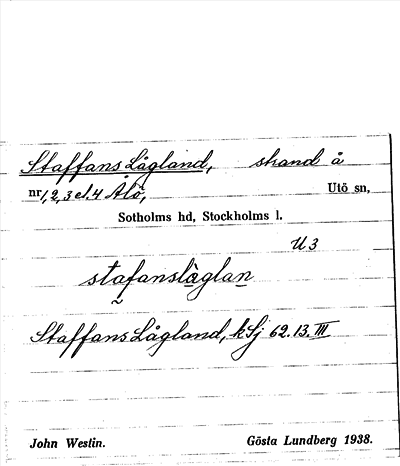 Staffans Lågland, strand å
nr 1, 2, 3 el. 4 Ålö, Utö sn,
Sotholms hd, Stockholms l.
U 3
stafanslàglan
Staffans Lågland, k Sj 62.13.III
John Westin. Gösta Lundberg 1938.